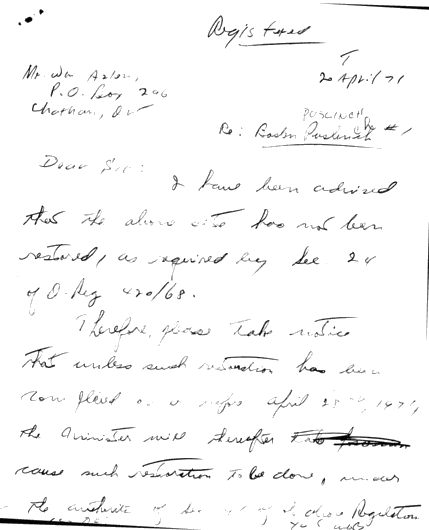 Registered
20 April 71
Mr. Wm
P.O. Box 206
Chatham, Ont
PUSLINCH
Re: Puslinch #1
Dear Sir:
I have been advised
that the above site has not been
restored, as required by Sec 24
of O. Reg 420/68.
Therefore, please take notice
that unless such restoration has been
completed on or before April 28th, 1971,
the Minister will thereafter
cause such restoration to be done, under
the authority of Sec of above Regulation